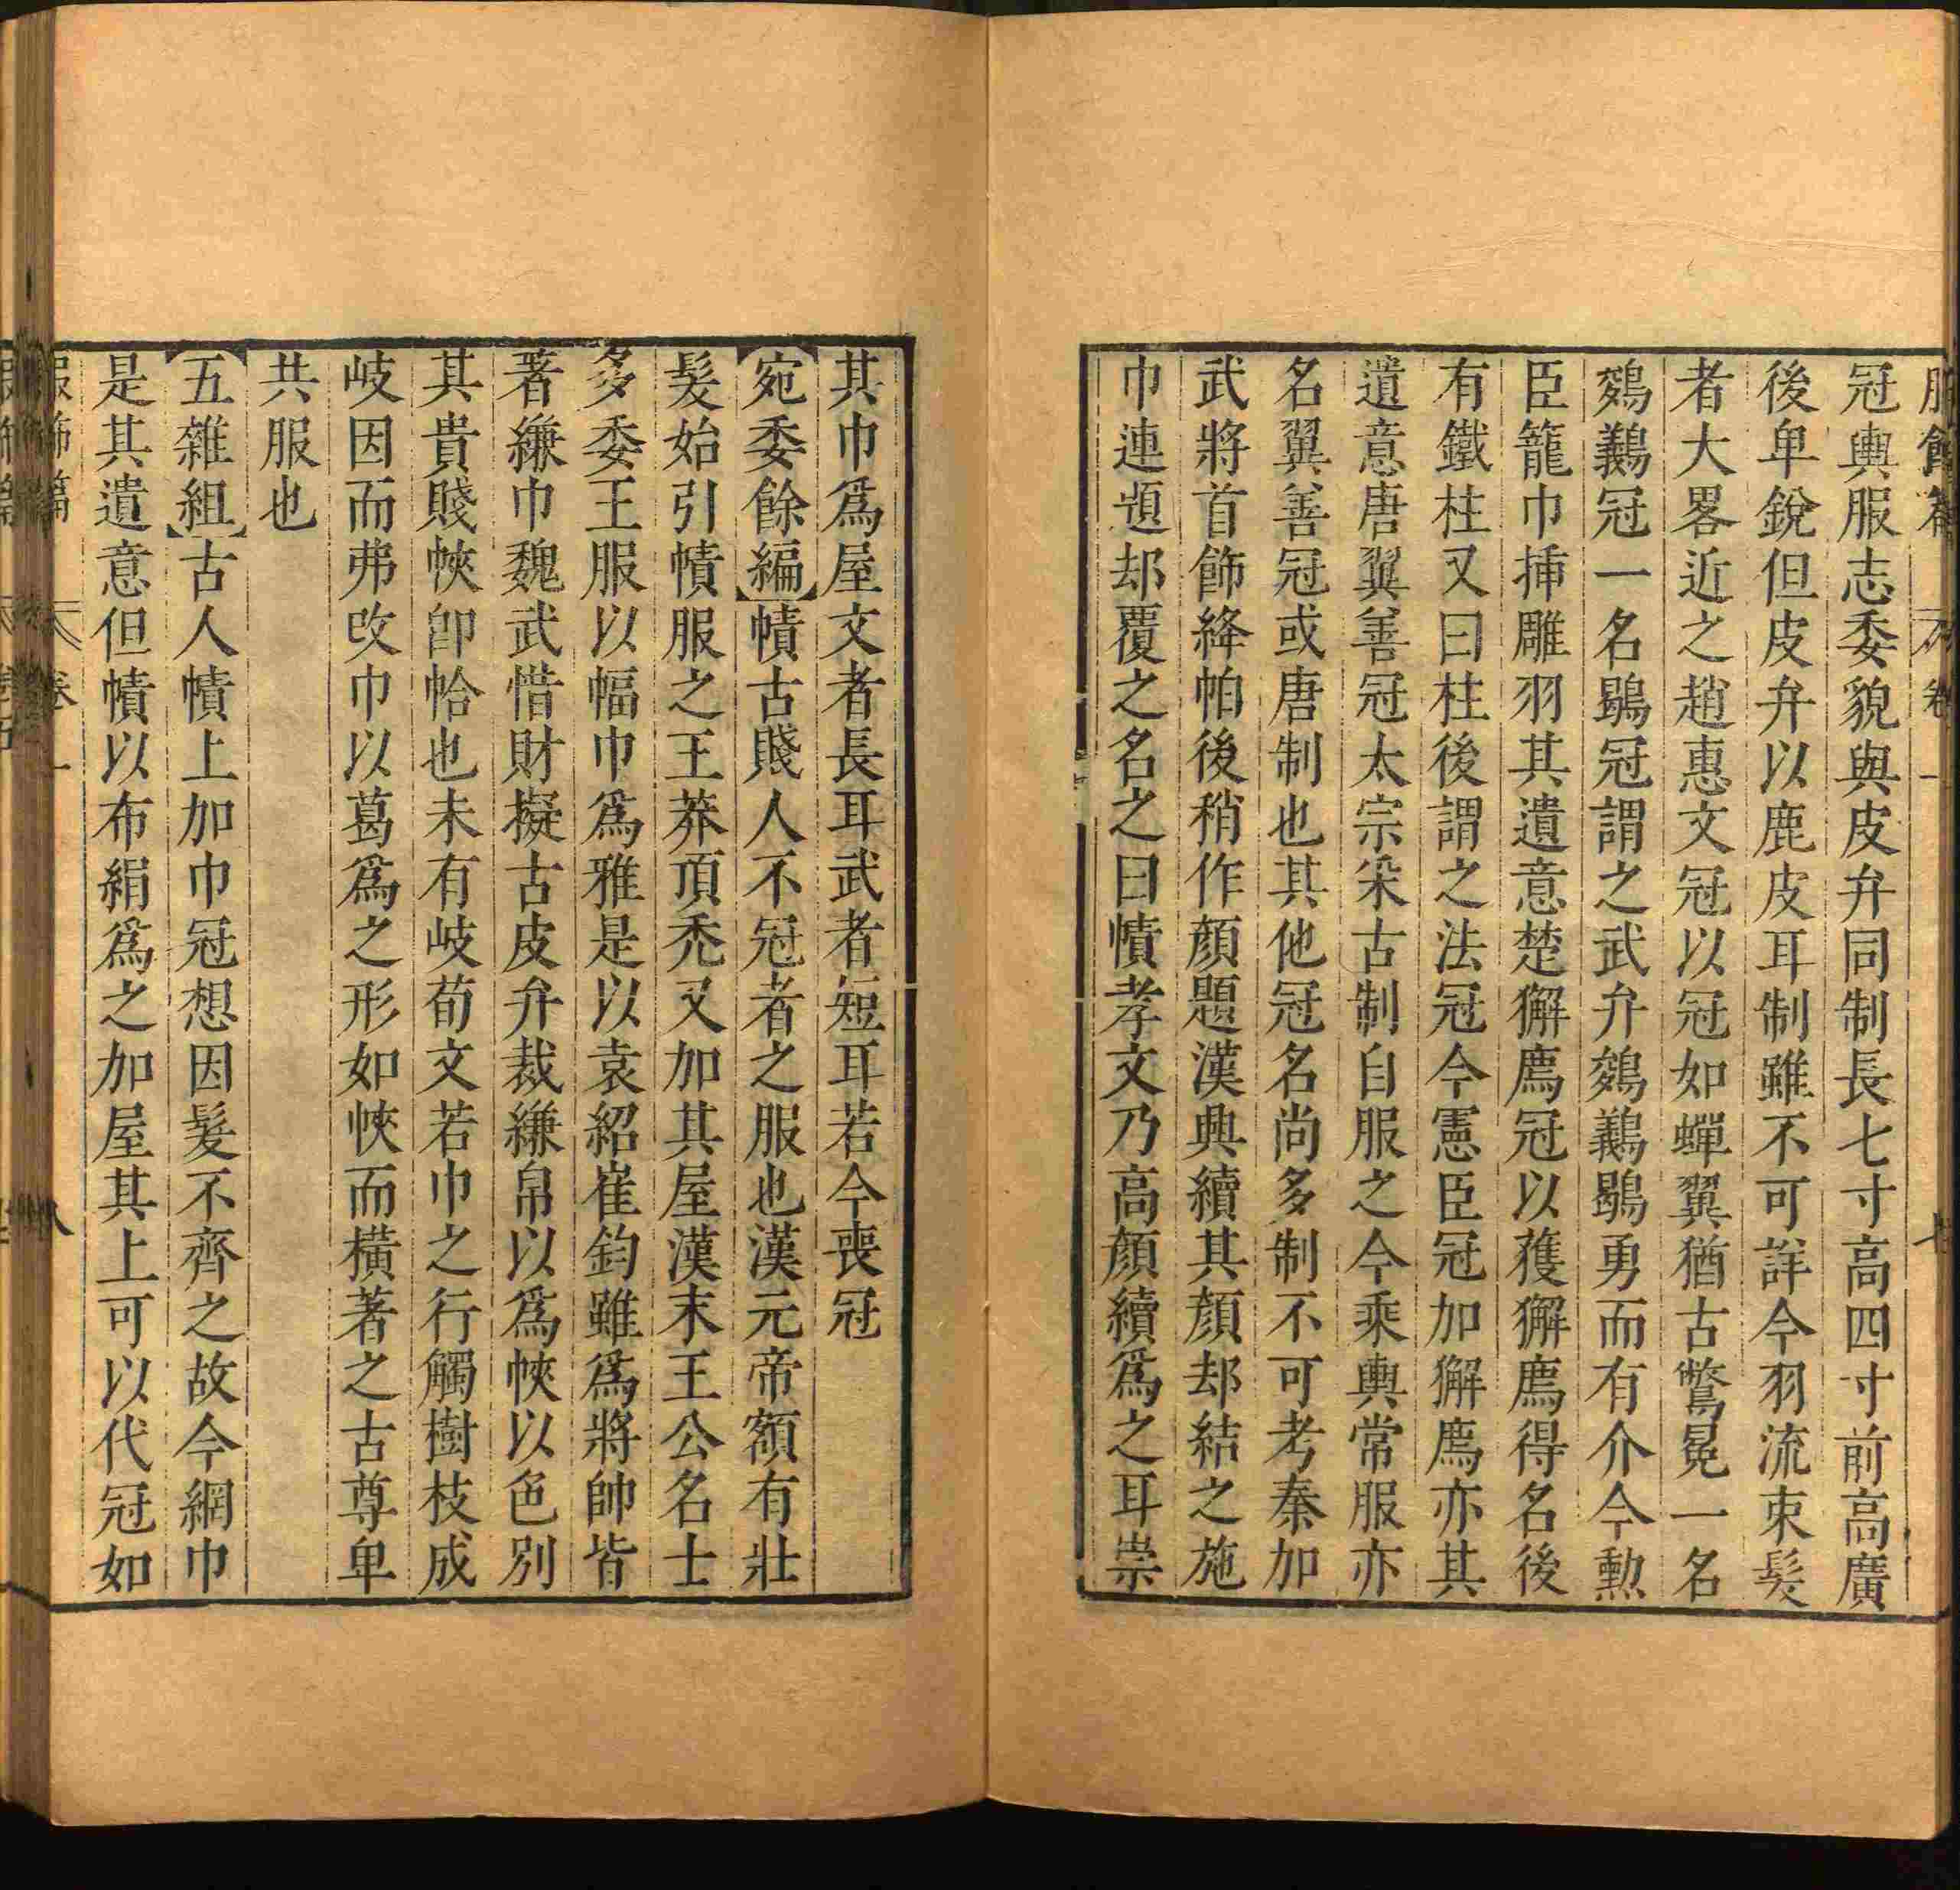 冠輿服志委貌與皮弁同制長七寸高四寸前高廣
後𤰞銳但皮弁以鹿皮耳制雖不可詳今羽流束髮
者大畧近之趙惠文冠以冠如蟬翼猶古鷩冕一名
鵕鸃冠一名鶡冠謂之武弁鵕鸃鶡勇而有介今勳
臣籠巾挿雕羽其遺意楚獬廌冠以獲獬廌得名後
有鐵柱又曰柱後謂之法冠今憲臣冠加獬廌亦其
遺意唐翼善冠太宗采古制自服之今乘輿常服亦
名翼善冠或唐制也其他冠名尚多制不可考秦加
武將首飾絳帕後稍作顏題漢興續其顏却結之施
巾連題却覆之名之曰幘孝文乃高顏續爲之耳崇
其巾爲屋文者長耳武者短耳若今喪冠
【宛委餘編】幘古賤人不冠者之服也漢元帝額有壯
髮始引幘服之王莽頂禿又加其屋漢末王公名士
多委王服以幅巾爲雅是以袁紹崔鈞雖爲將帥皆
著縑巾魏武惜財擬古皮弁裁縑帛以爲㡊以色別
其貴賤㡊卽帢也未有岐荀文若巾之行觸樹枝成
岐因而弗改巾以葛爲之形如㡊而橫著之古尊𤰞
共服也
【五雜組】古人幘上加巾冠想因髮不齊之故今網巾
是其遺意但幘以布絹爲之加屋其上可以代冠如
服飾篇 卷一 八